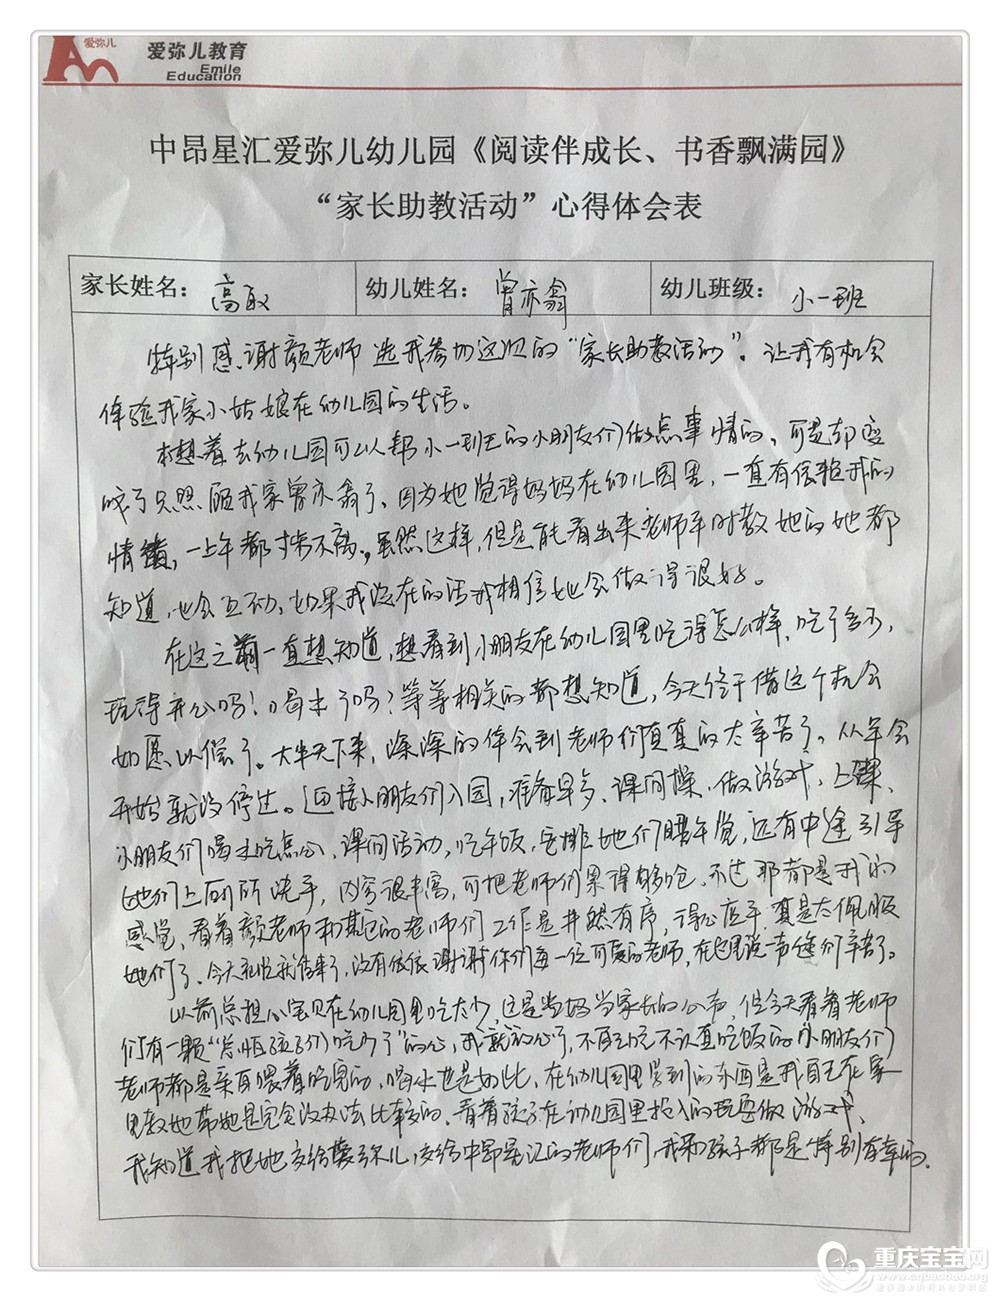 爱弥儿
爱弥儿教育
Emile
Education
中昂星汇爱弥儿幼儿园《阅读伴成长、书香飘满园》
“家长助教活动”心得体会表
家长姓名： 高 幼儿姓名： 曾亦鑫 幼儿班级： 小一班
特别感谢颜老师选我参加这次的“家长助教活动”。让我有机会
体验我家小姑娘在幼儿园的生活。
本想着去幼儿园可以帮小一班的小朋友们做点事情的、可是却变
成了只照顾我家曾亦鑫了、因为她觉得妈妈在幼儿园里，一直有依赖我的
情绪，一上午都寸步不离。虽然这样，但是能看出来老师平时教她的她都
知道，也会互动，如果我没在的话我相信她会做得很好。
在这之前一直想知道，想看到小朋友在幼儿园里吃得怎么样，吃了多少，
玩得开心吗？喝水了吗？等等相关的都想知道，今天终于借这个机会
如愿以偿了。大半天下来，深深的体会到老师们真真的太辛苦了。从早会
开始就没停过。迎接小朋友们入园，准备早餐、课间操、做游戏、上课、
小朋友们喝水吃点心、课间活动，吃午饭，安排她们睡午觉，还有中途引导
她们上厕所洗手，内容很丰富，可把老师们累得够呛，不过那都是我的
感觉，看着颜老师和其它的老师们工作是井然有序，得心应手，真是太佩服
她们了、今天谢谢你们每一位可爱的老师，在这里说一声老师们辛苦了。
以前总担心宝贝在幼儿园里吃太少，这是当妈当家长的心声，但今天看着老师
们有一颗“总怕孩子们吃少了”的心，我就放心了，不再不认真吃饭的小朋友们
老师都是亲自喂着吃完的，喝水也是如此、在幼儿园里学到的东西是我自己在家
里教她带她是完全没办法比较的、看着孩子在幼儿园里投入的玩耍做游戏、
我知道我把她交给爱弥儿，交给中昂星汇的老师们，我和孩子都是特别有幸的。
重庆宝宝网
www.cqbaobao.org